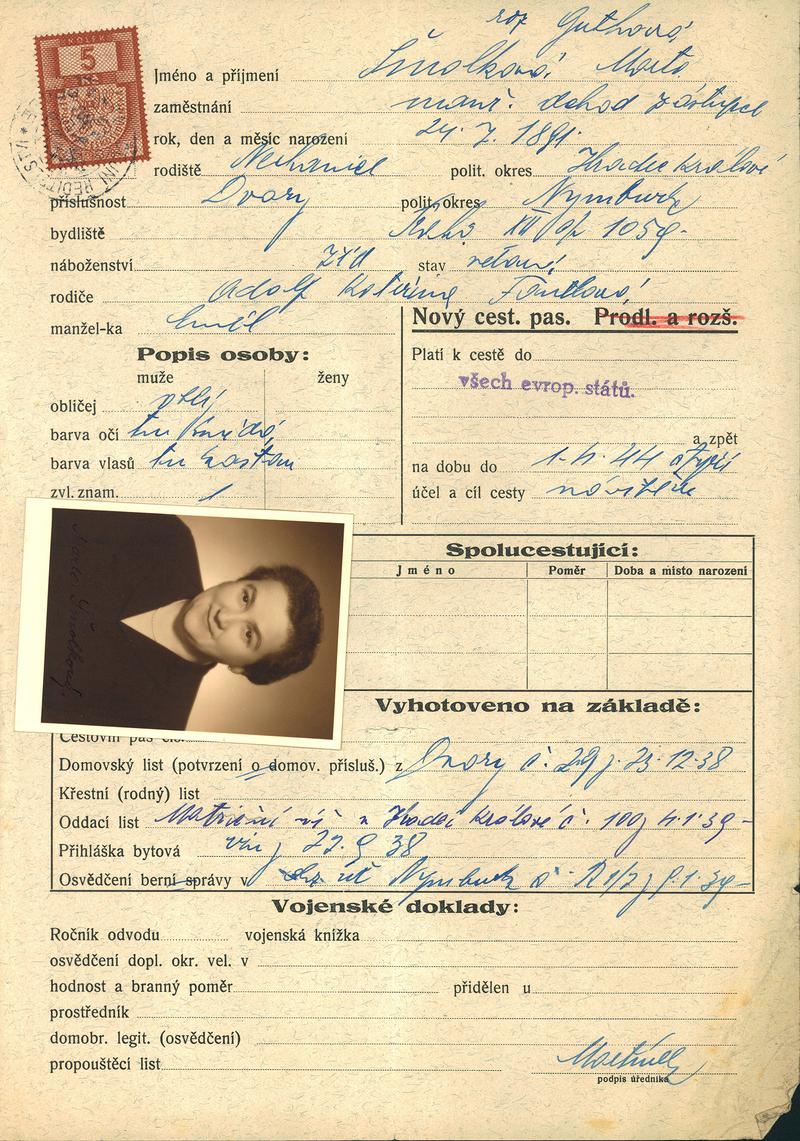 roz Guthová
5
Jméno a přijmení Smolková Marta
zaměstnání manž. obchod zástupce
rok, den a měsíc narození 24. 7. 1891.
rodiště Nechanice polit. okres Hradec Králové
příslušnost Dvory polit. okres Nymburk
bydliště XII čp 1059-
náboženství žid stav
rodiče Adolf Kateřina
manžel-ka Emil
Nový cest. pas. Prodl. a rozš.
Popis osoby:
Platí k cestě do
muže ženy
všech evrop. států.
obličej
barva očí
a zpět
barva vlasů tm kaštan
na dobu do 1-4-44 čtyři
zvl. znam.
účel a cíl cesty návštěva
Marta Smolková
Spolucestující:
Jméno Poměr Doba a místo narození
Vyhotoveno na základě:
Cestovní pas čís.
Domovský list (potvrzení o domov. přísluš.) z Dvory č. 29 z 23-12-38
Křestní (rodný) list
Oddací list Matriční úř v Hradci Králové č. 100 z 4.1.39-
Přihláška bytová z 22. 9 38
Osvědčení berní správy v Nymburk
Vojenské doklady:
Ročník odvodu vojenská knížka
osvědčení dopl. okr. vel. v
hodnost a branný poměr přidělen u
prostředník
domobr. legit. (osvědčení)
propouštěcí list
podpis úředníka